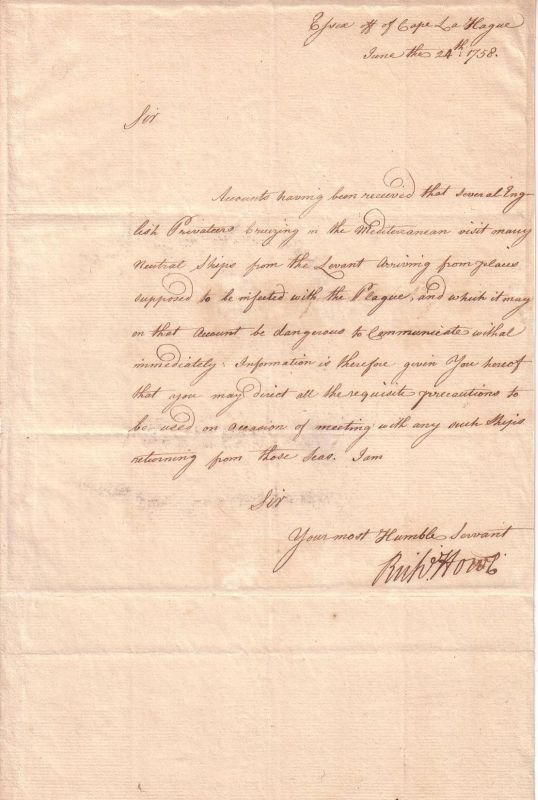 Essex off of Cape La Hague
June the 24th. 1758.
Sir
Accounts having been received that several Eng-
lish Privateers Cruizing in the Mediterranean visit many
Neutral Ships from the Levant Arriving from places
supposed to be infected with the Plague, and which it may
on that Account be dangerous to Communicate withal
immediately: Information is therefore given You hereof
that you may direct all the requisite precautions to
be used on occasion of meeting with any such Ships
returning from those Seas. I am
Sir
Your most Humble Servant
Richd. Howe